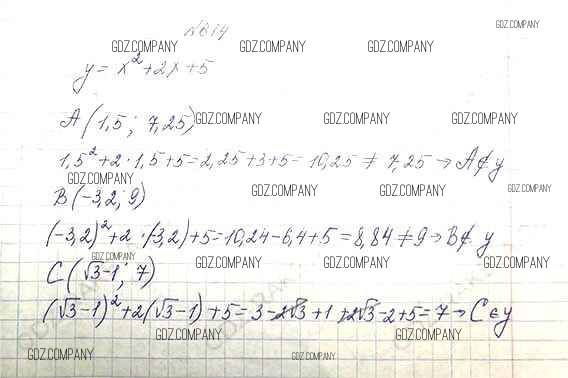 №814 GDZ.COMPANY
GDZ.COMPANY GDZ.COMPANY GDZ.COMPANY
y = x² + 2x + 5
A (1,5 ; 7,25) GDZ.COMPANY GDZ.COMPANY GDZ.COMPANY
1,5² + 2 · 1,5 + 5 = 2,25 + 3 + 5 = 10,25 ≠ 7,25 → A ∉ y
GDZ.COMPANY
B (-3,2 ; 9) GDZ.COMPANY GDZ.COMPANY GDZ.COMPANY
(-3,2)² + 2 · (-3,2) + 5 = 10,24 - 6,4 + 5 = 8,84 ≠ 9 → B ∉ y
GDZ.COMPANY
C (√3-1 ; 7) GDZ.COMPANY GDZ.COMPANY GDZ.COMPANY
(√3-1)² + 2(√3-1) + 5 = 3 - 2√3 + 1 + 2√3 - 2 + 5 = 7 → C ∈ y
GDZ.COMPANY GDZ.COMPANY
GDZ.COMPANY GDZ.COMPANY GDZ.COMPANY